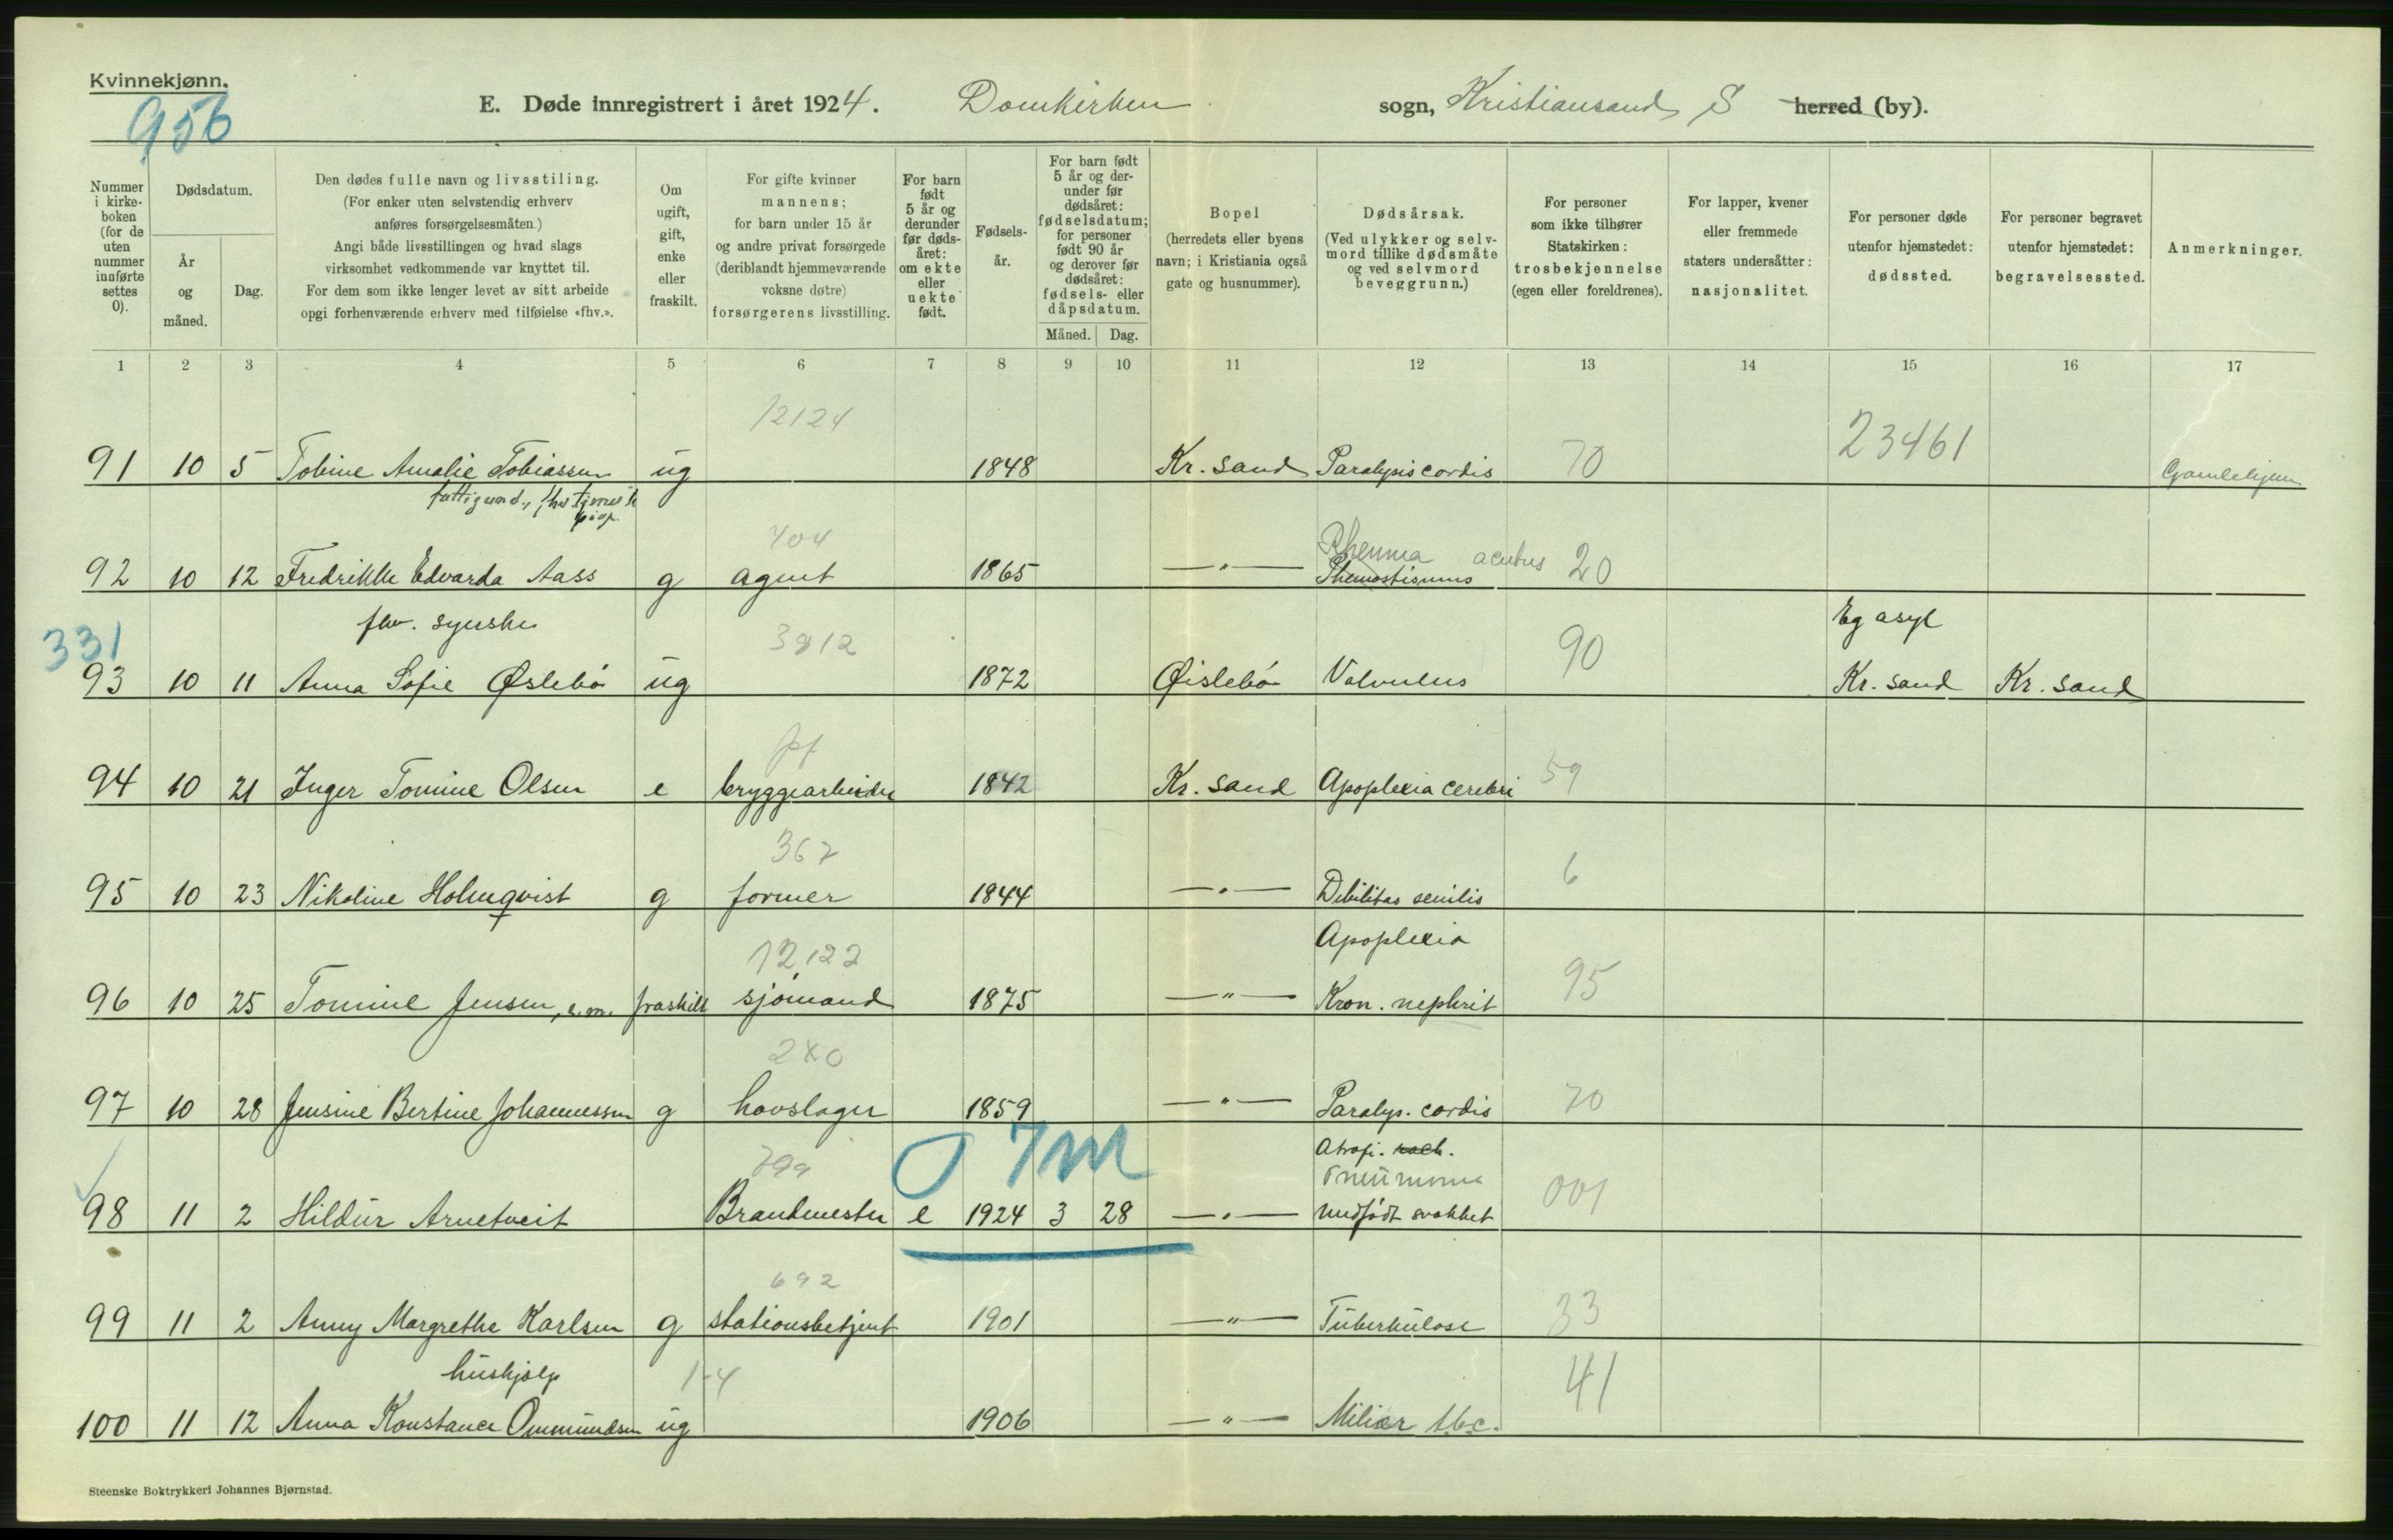 Kvinnekjønn.
956
E. Døde innregistrert i året 1924. Domkirken sogn, Kristiansand S herred (by).
Nummer i kirkeboken (for de uten nummer innførte settes 0).
Dødsdatum.
År og måned.
Dag.
Den dødes fulle navn og livsstiling.
(For enker uten selvstendig erhverv
anføres forsørgelsesmåten.)
Angi både livsstillingen og hvad slags
virksomhet vedkommende var knyttet til.
For dem som ikke lenger levet av sitt arbeide
opgi forhenværende erhverv med tilføielse «fhv.».
Om ugift, gift, enke eller fraskilt.
For gifte kvinner
mannens;
for barn under 15 år
og andre privat forsørgede
(deriblandt hjemmeværende
voksne døtre)
forsørgerens livsstilling.
For barn født 5 år og derunder før dødsåret: om ekte eller uekte født.
Fødselsår.
For barn født 5 år og derunder før dødsåret: fødselsdatum; for personer født 90 år og derover før dødsåret: fødsels- eller dåpsdatum.
Måned. Dag.
Bopel
(herredets eller byens
navn; i Kristiania også
gate og husnummer).
Dødsårsak.
(Ved ulykker og selvmord tillike dødsmåte
og ved selvmord
beveggrunn.)
For personer
som ikke tilhører
Statskirken:
trosbekjennelse
(egen eller foreldrenes).
For lapper, kvener
eller fremmede
staters undersåtter:
nasjonalitet.
For personer døde
utenfor hjemstedet:
dødssted.
For personer begravet
utenfor hjemstedet:
begravelsessted.
Anmerkninger.
1 2 3 4 5 6 7 8 9 10 11 12 13 14 15 16 17
12124
23461
91 10 5 Tobine Amalie Tobiassen ug 1848 Kr. sand Paralysis cordis 70 Gamlehjem
fattigund., fhv. tjeneste
404
Rheuma acutus
92 10 12 Fredrikke Edvarda Aass g agent 1865 —"— 20
fhv. syerske
3812
Eg asyl
331
93 10 11 Anna Sofie Øslebö ug 1872 Øislebö Volvulus 90 Kr. sand Kr. sand
94 10 21 Inger Tomine Olsen e bryggearbeider 1842 Kr. sand Apoplexia cerebri 59
367
95 10 23 Nikoline Holmqvist g former 1844 —"— Debilitas senilis 6
12122
Apoplexia
96 10 25 Tomine Jensen, e.m. fraskilt sjömand 1875 —"— Kron. nephrit 95
240
97 10 28 Jensine Bertine Johannessen g hovslager 1859 —"— Paralys. cordis 70
799
0 7m
Atrofi.
Pneumonia
98 11 2 Hildur Arnetveit Brandmester e 1924 3 28 —"— medfödt svakhet 001
692
99 11 2 Anny Margrethe Karlsen g stationsbetjent 1901 —"— Tuberkulose 33
hushjelp
1-4
100 11 12 Anna Konstance Ommundsen ug 1906 —"— Miliær tbc. 41
Steenske Boktrykkeri Johannes Bjørnstad.